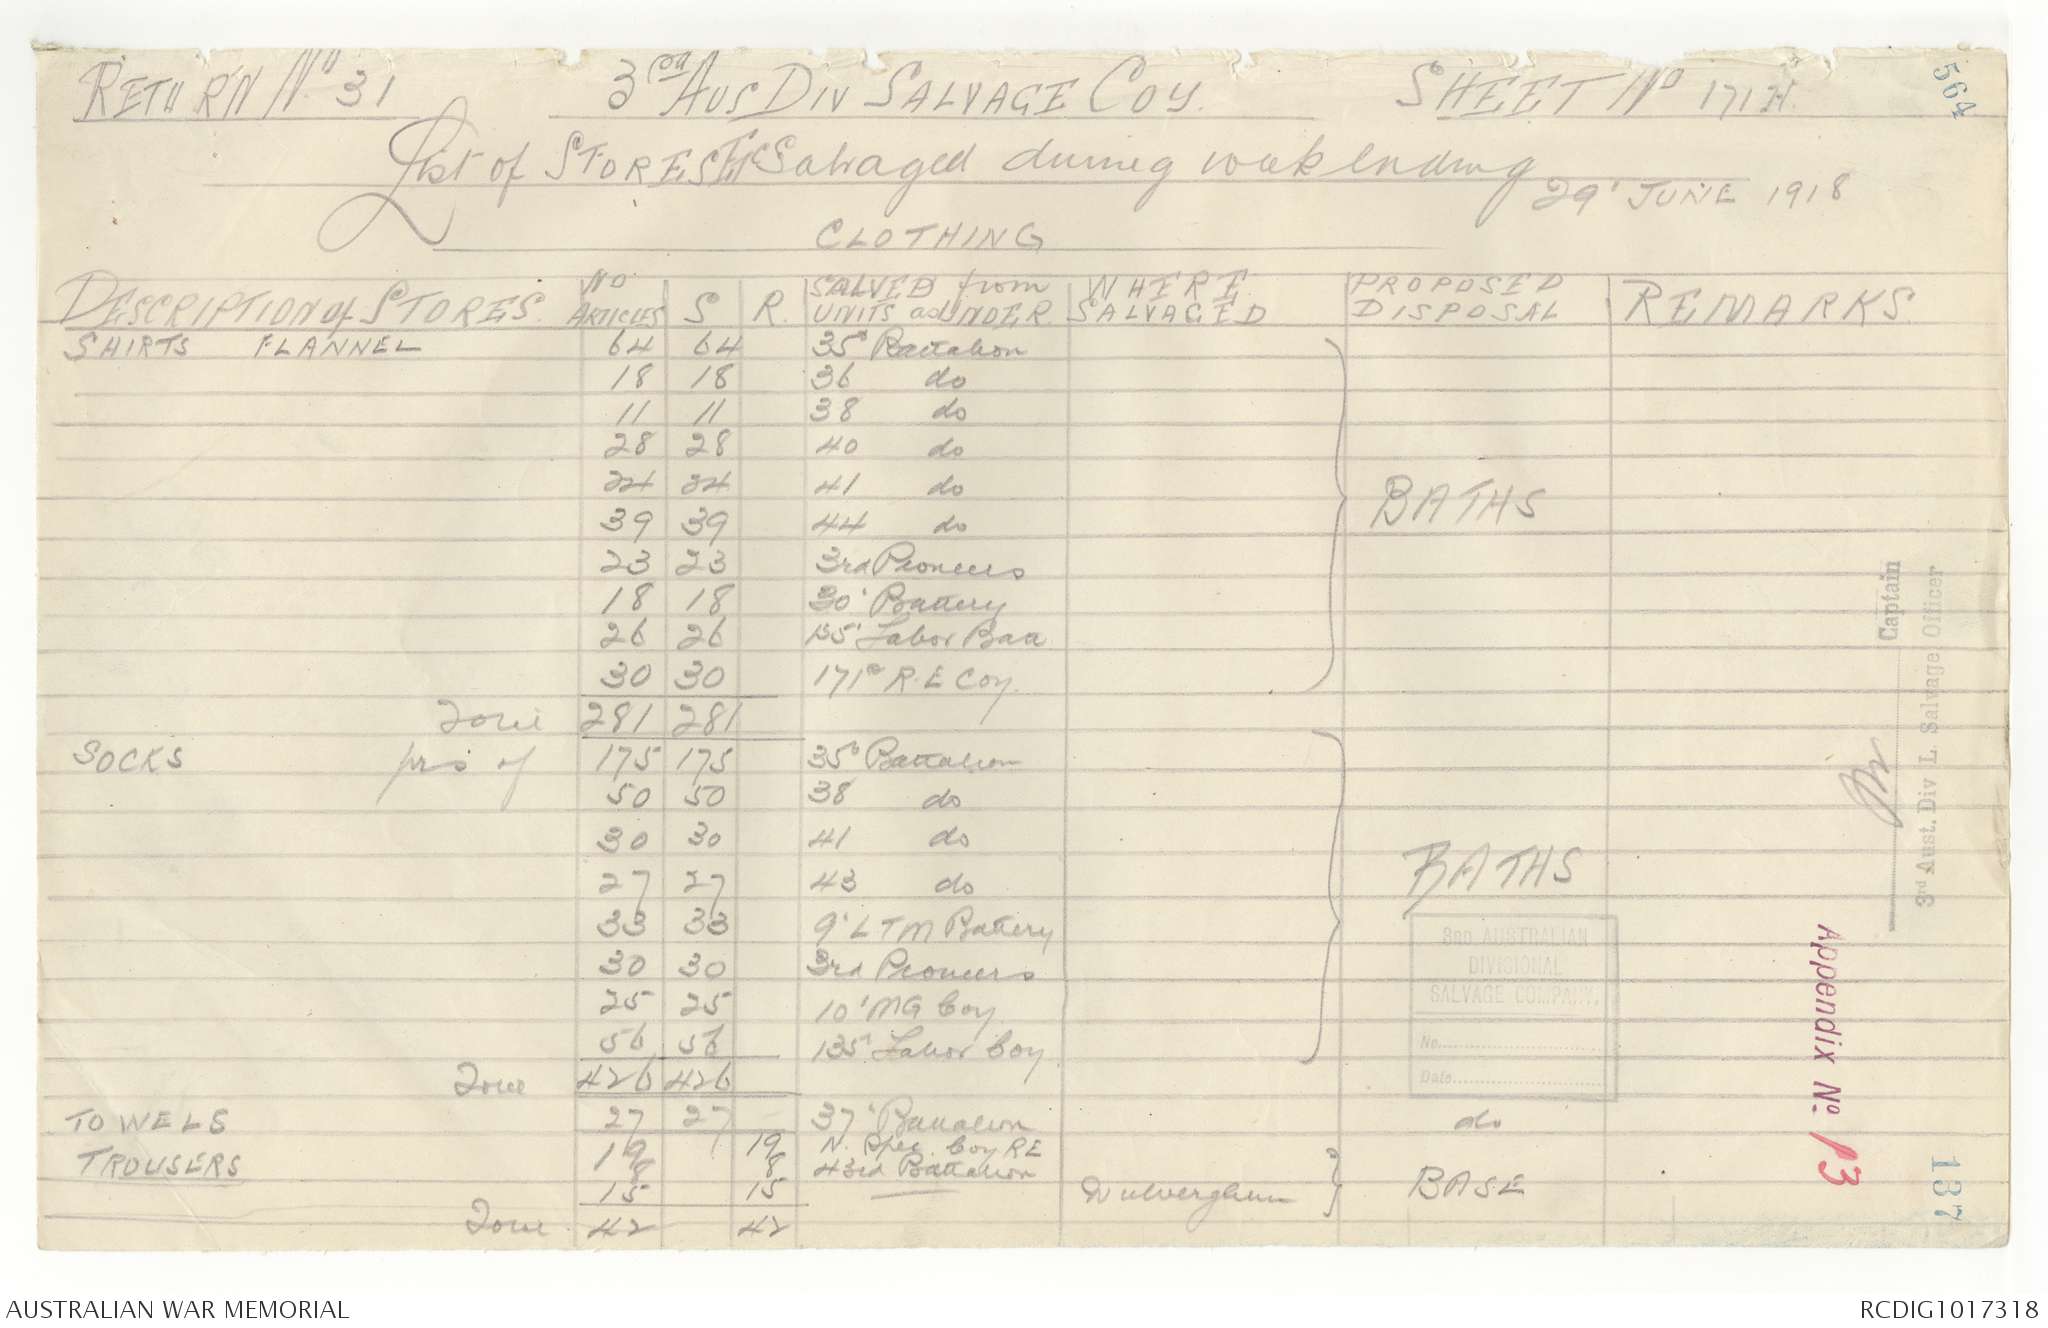 RETURN No 31 3RD AUS DIV SALVAGE COY. SHEET No 171H.
List of STORES Etc Salvaged during week ending 29' JUNE 1918
CLOTHING
DESCRIPTION of STORES. No ARTICLES S R. SALVED from UNITS as UNDER WHERE SALVAGED PROPOSED DISPOSAL REMARKS
SHIRTS FLANNEL 64 64 35' Battalion
18 18 36 do
11 11 38 do
28 28 40 do
24 24 41 do
39 39 44 do
BATHS
23 23 3rd Pioneers
18 18 30' Battery
26 26 135' Labor Baa
30 30 171st R.E Coy.
Total 281 281
SOCKS prs of 175 175 35' Battalion
50 50 38 do
30 30 41 do
27 27 43 do
BATHS
33 33 9' L TM Battery
30 30 3rd Pioneers
25 25 10' MG Coy
56 56 135' Labor Coy
Total 426 426
TOWELS 27 27 37' Battalion do
TROUSERS 19 19 N. Spec. Coy RE
8 8 43rd Battalion
15 15 Wulverghem BASE
Total 42 42
3RD AUSTRALIAN
DIVISIONAL
SALVAGE COMPANY.
No.
Date
Captain
3rd Aust. Div L. Salvage Officer
Appendix No. 13
564
137
AUSTRALIAN WAR MEMORIAL RCDIG1017318